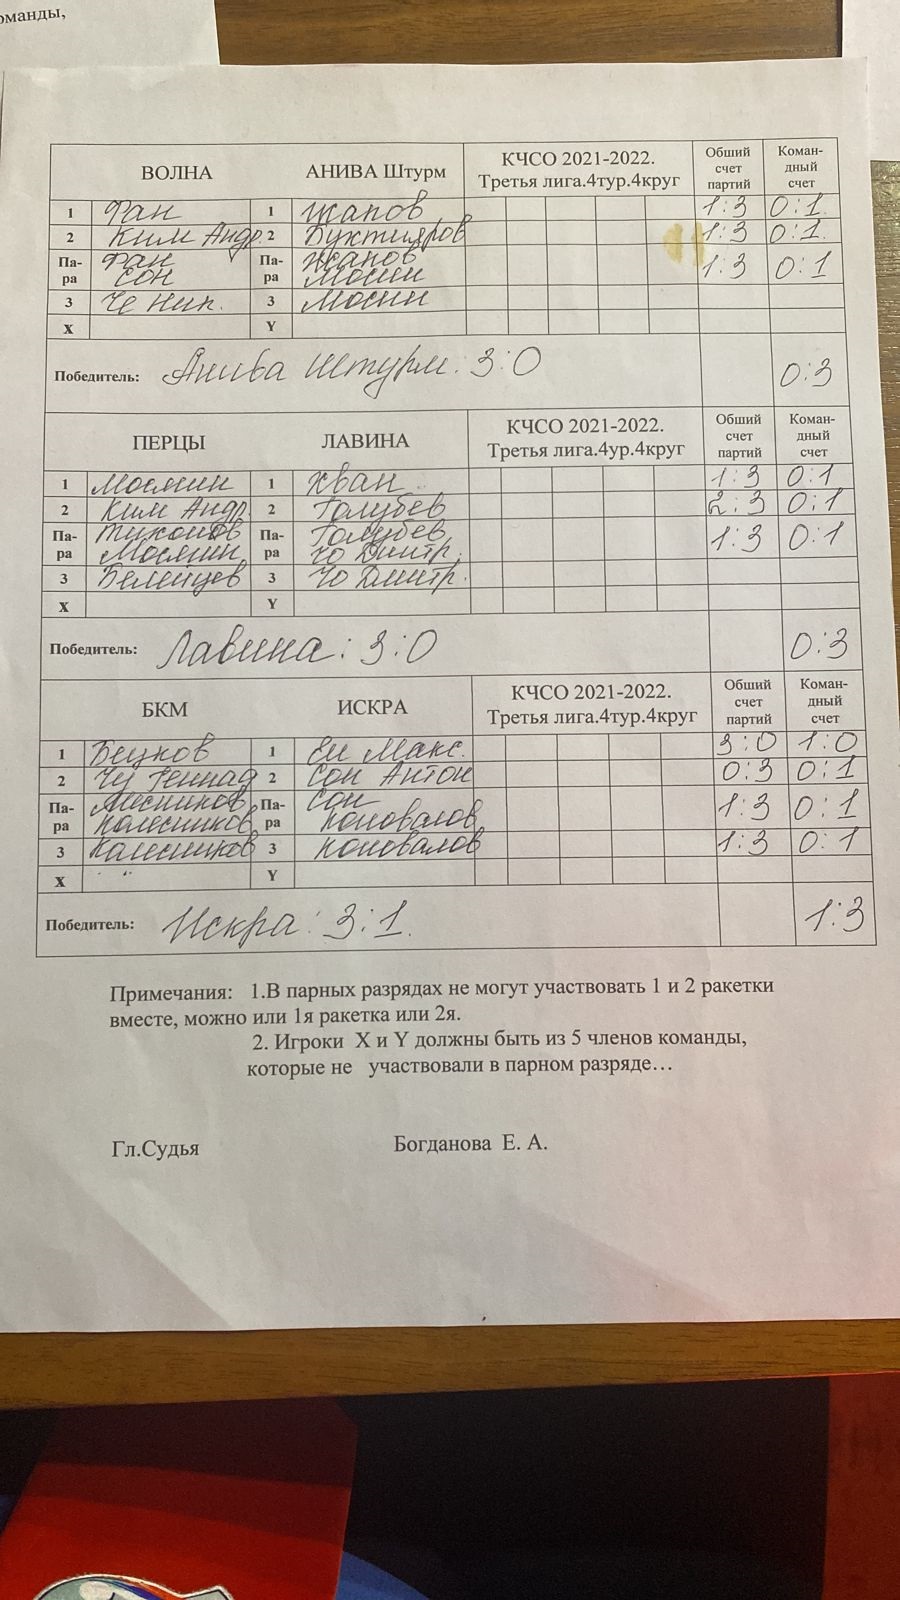 оманды,
ВОЛНА АНИВА Штурм КЧСО 2021-2022. Третья лига.4тур.4круг Обший счет партий Коман-дный счет
1 Фан 1 Жапов 1:3 0:1
2 Ким Андр. 2 1:3 0:1
Па-ра Фан Сон Па-ра Жапов Мосин 1:3 0:1
3 Че Ник. 3 Мосин
X Y
Победитель: Анива Штурм: 3:0 0:3
ПЕРЦЫ ЛАВИНА КЧСО 2021-2022. Третья лига.4ур.4круг Обший счет партий Коман-дный счет
1 1 Хван 1:3 0:1
2 Ким Андр. 2 Голубев 2:3 0:1
Па-ра Тихонов Па-ра Голубев Чо Дмитр. 1:3 0:1
3 Белейцев 3 Чо Дмитр.
X Y
Победитель: Лавина: 3:0 0:3
БКМ ИСКРА КЧСО 2021-2022. Третья лига.4тур.4круг Обший счет партий Коман-дный счет
1 1 Ен Макс. 3:0 1:0
2 Чу Геннад 2 Сон Антон 0:3 0:1
Па-ра Колесников Па-ра Сон Коновалов 1:3 0:1
3 Колесников 3 Коновалов 1:3 0:1
X Y
Победитель: Искра: 3:1. 1:3
Примечания: 1.В парных разрядах не могут участвовать 1 и 2 ракетки
вместе, можно или 1я ракетка или 2я.
2. Игроки X и Y должны быть из 5 членов команды,
которые не участвовали в парном разряде…
Гл.Судья Богданова Е. А.